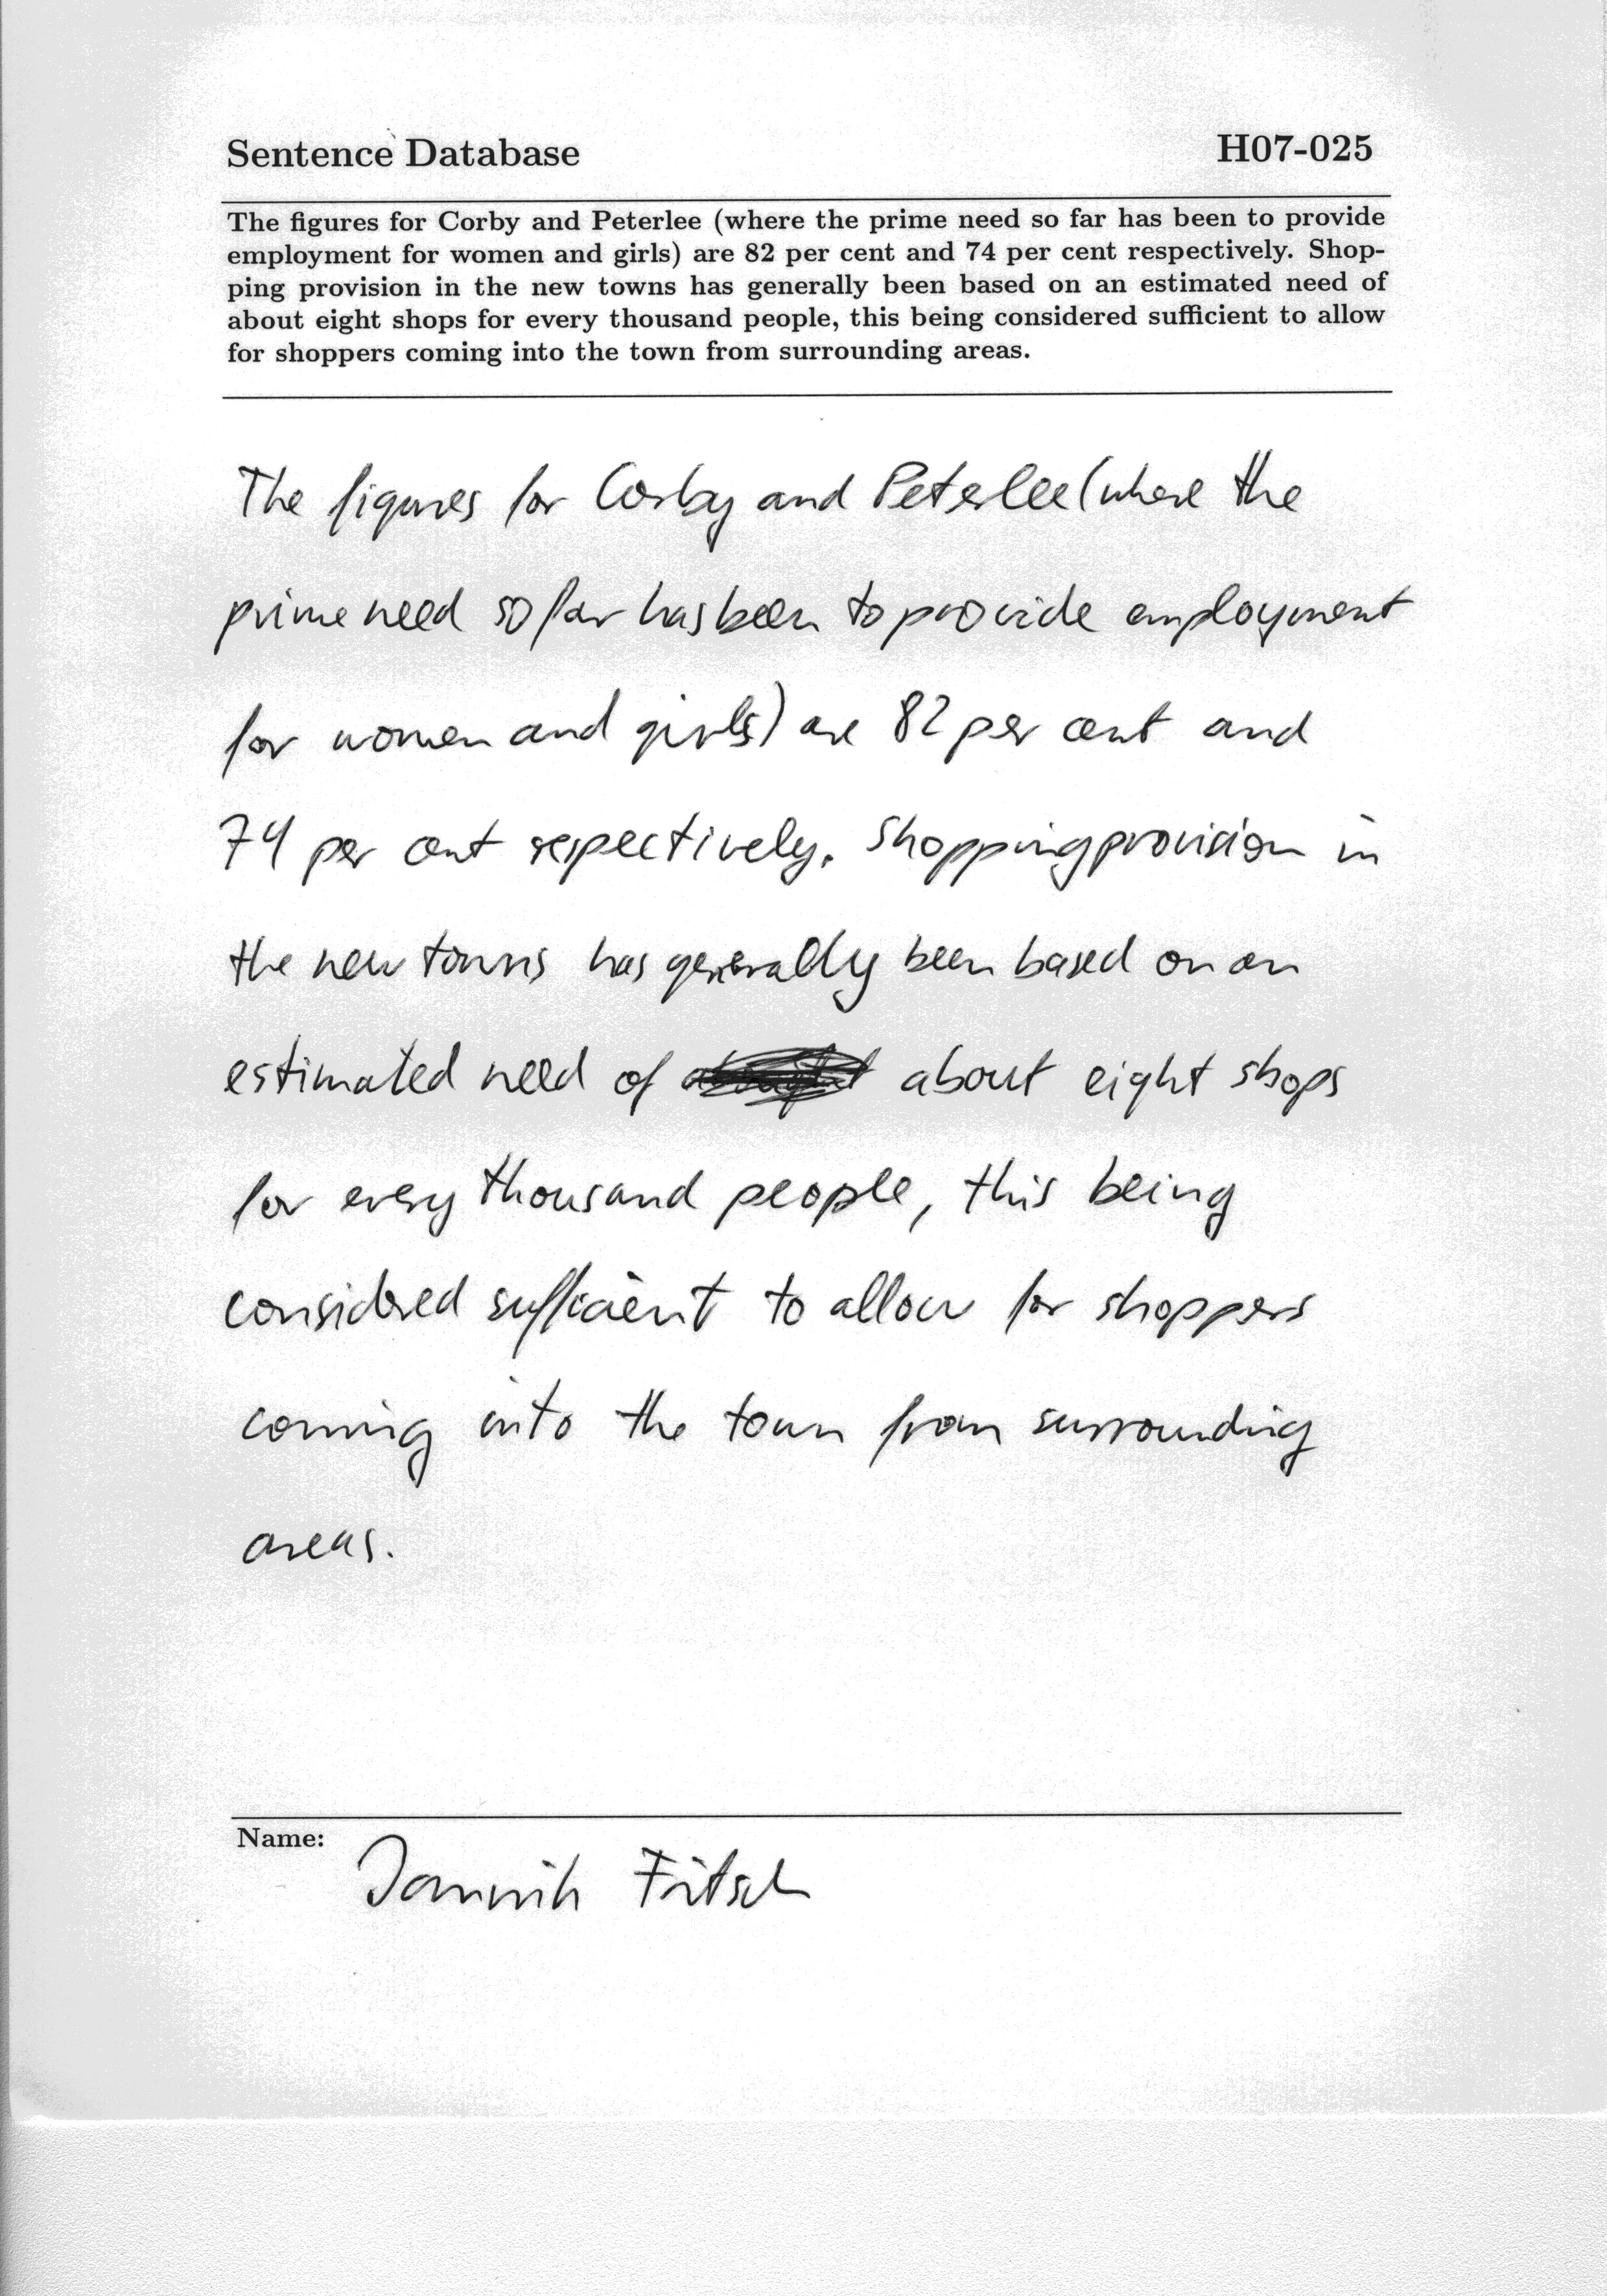 Sentence Database H07-025
The figures for Corby and Peterlee (where the prime need so far has been to provide
employment for women and girls) are 82 per cent and 74 per cent respectively. Shop-
ping provision in the new towns has generally been based on an estimated need of
about eight shops for every thousand people, this being considered sufficient to allow
for shoppers coming into the town from surrounding areas.
The figures for Corby and Peterlee (where the
prime need so far has been to provide employment
for women and girls) are 82 per cent and
74 per cent respectively. Shopping provision in
the new towns has generally been based on an
estimated need of about eight shops
for every thousand people, this being
considered sufficient to allow for shoppers
coming into the town from surrounding
areas.
Name: Jannik Fitsch